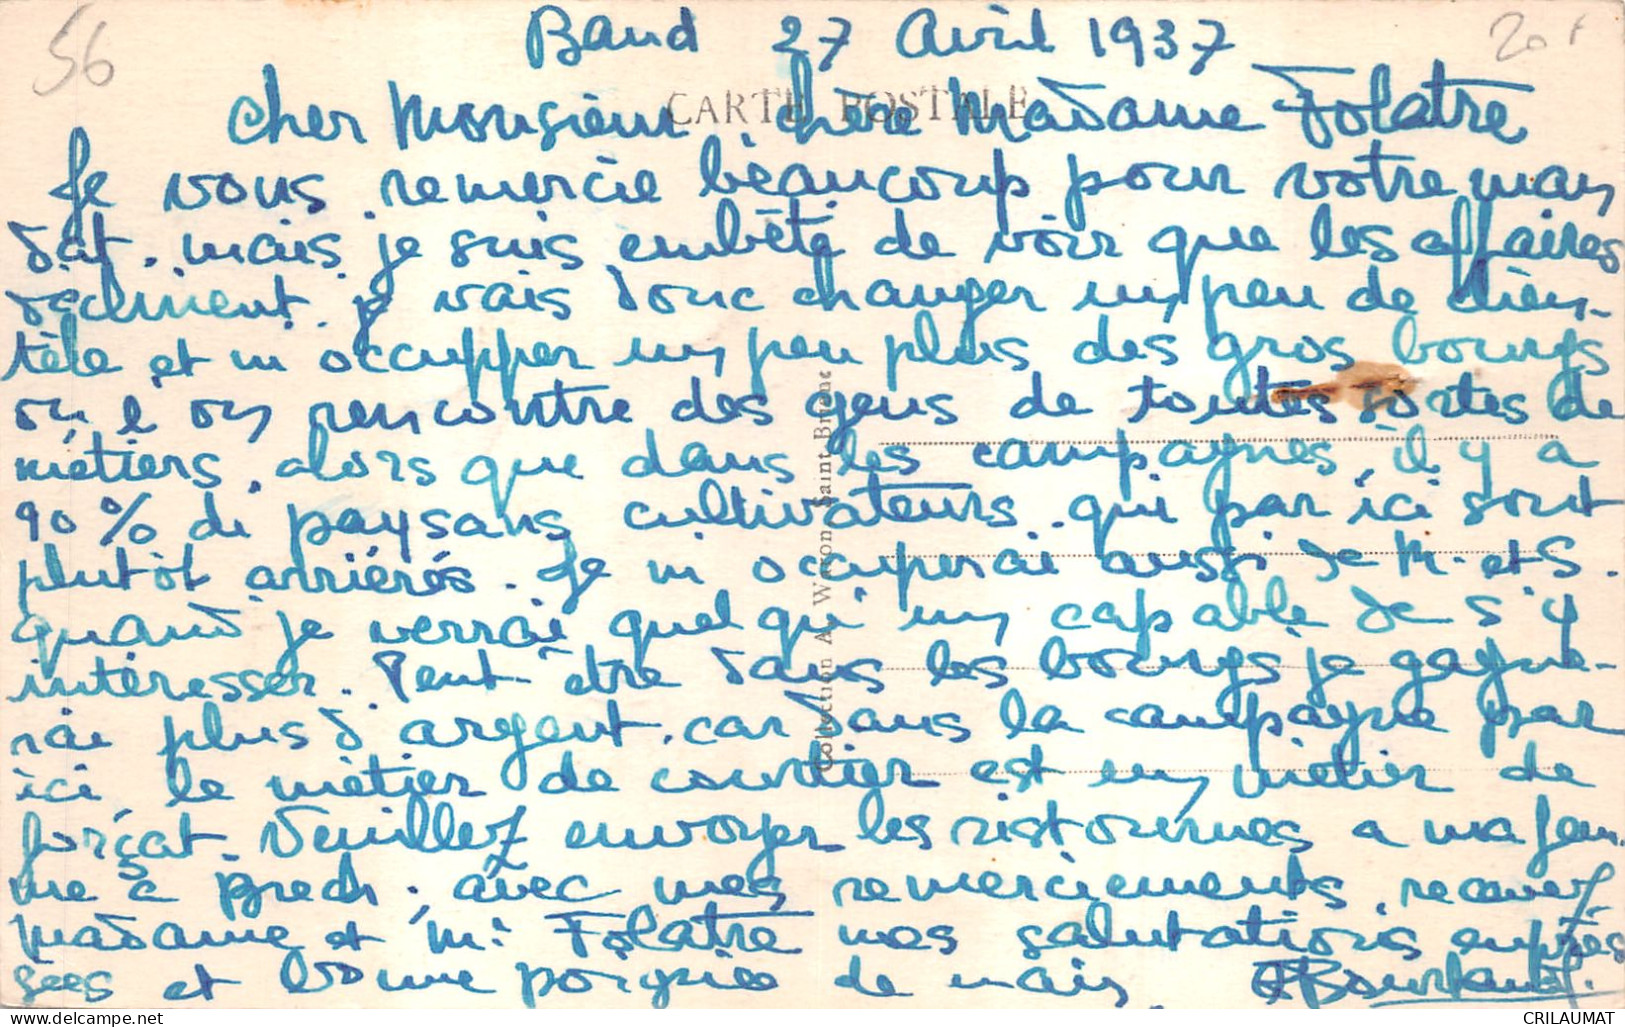 56
Baud 27 Avril 1937
20 F
CARTE POSTALE
cher Monsieur chère Madame Folatre
Je vous remercie beaucoup pour votre man
dat. mais je suis embêté de voir que les affaires
déclinent. je vais donc changer un peu de clien-
tèle et m occupper un peu plus des gros bourgs
ou l on rencontre des gens de toutes sortes de
métiers. alors que dans les campagnes, il y a
90 % di paysans cultivateurs. qui par ici sont
plutôt arriérés. Je m occuperai aussi de M. et S.
quand je verrai quel qu'un capable de s'y
intéresser. Peut-être dans les bourgs je gagne-
rai plus d argent. car dans la campagne par
ici, le métier de courtier est un métier de
forçat. Veuillez envoyer les ristournes a ma fem
me à Brech. avec mes remerciements, recevez
Madame et Mr Folatre mes salutations empres
sées et bonne poignée de main
Collection A. Waron Saint-Brieuc
CRILAUMAT